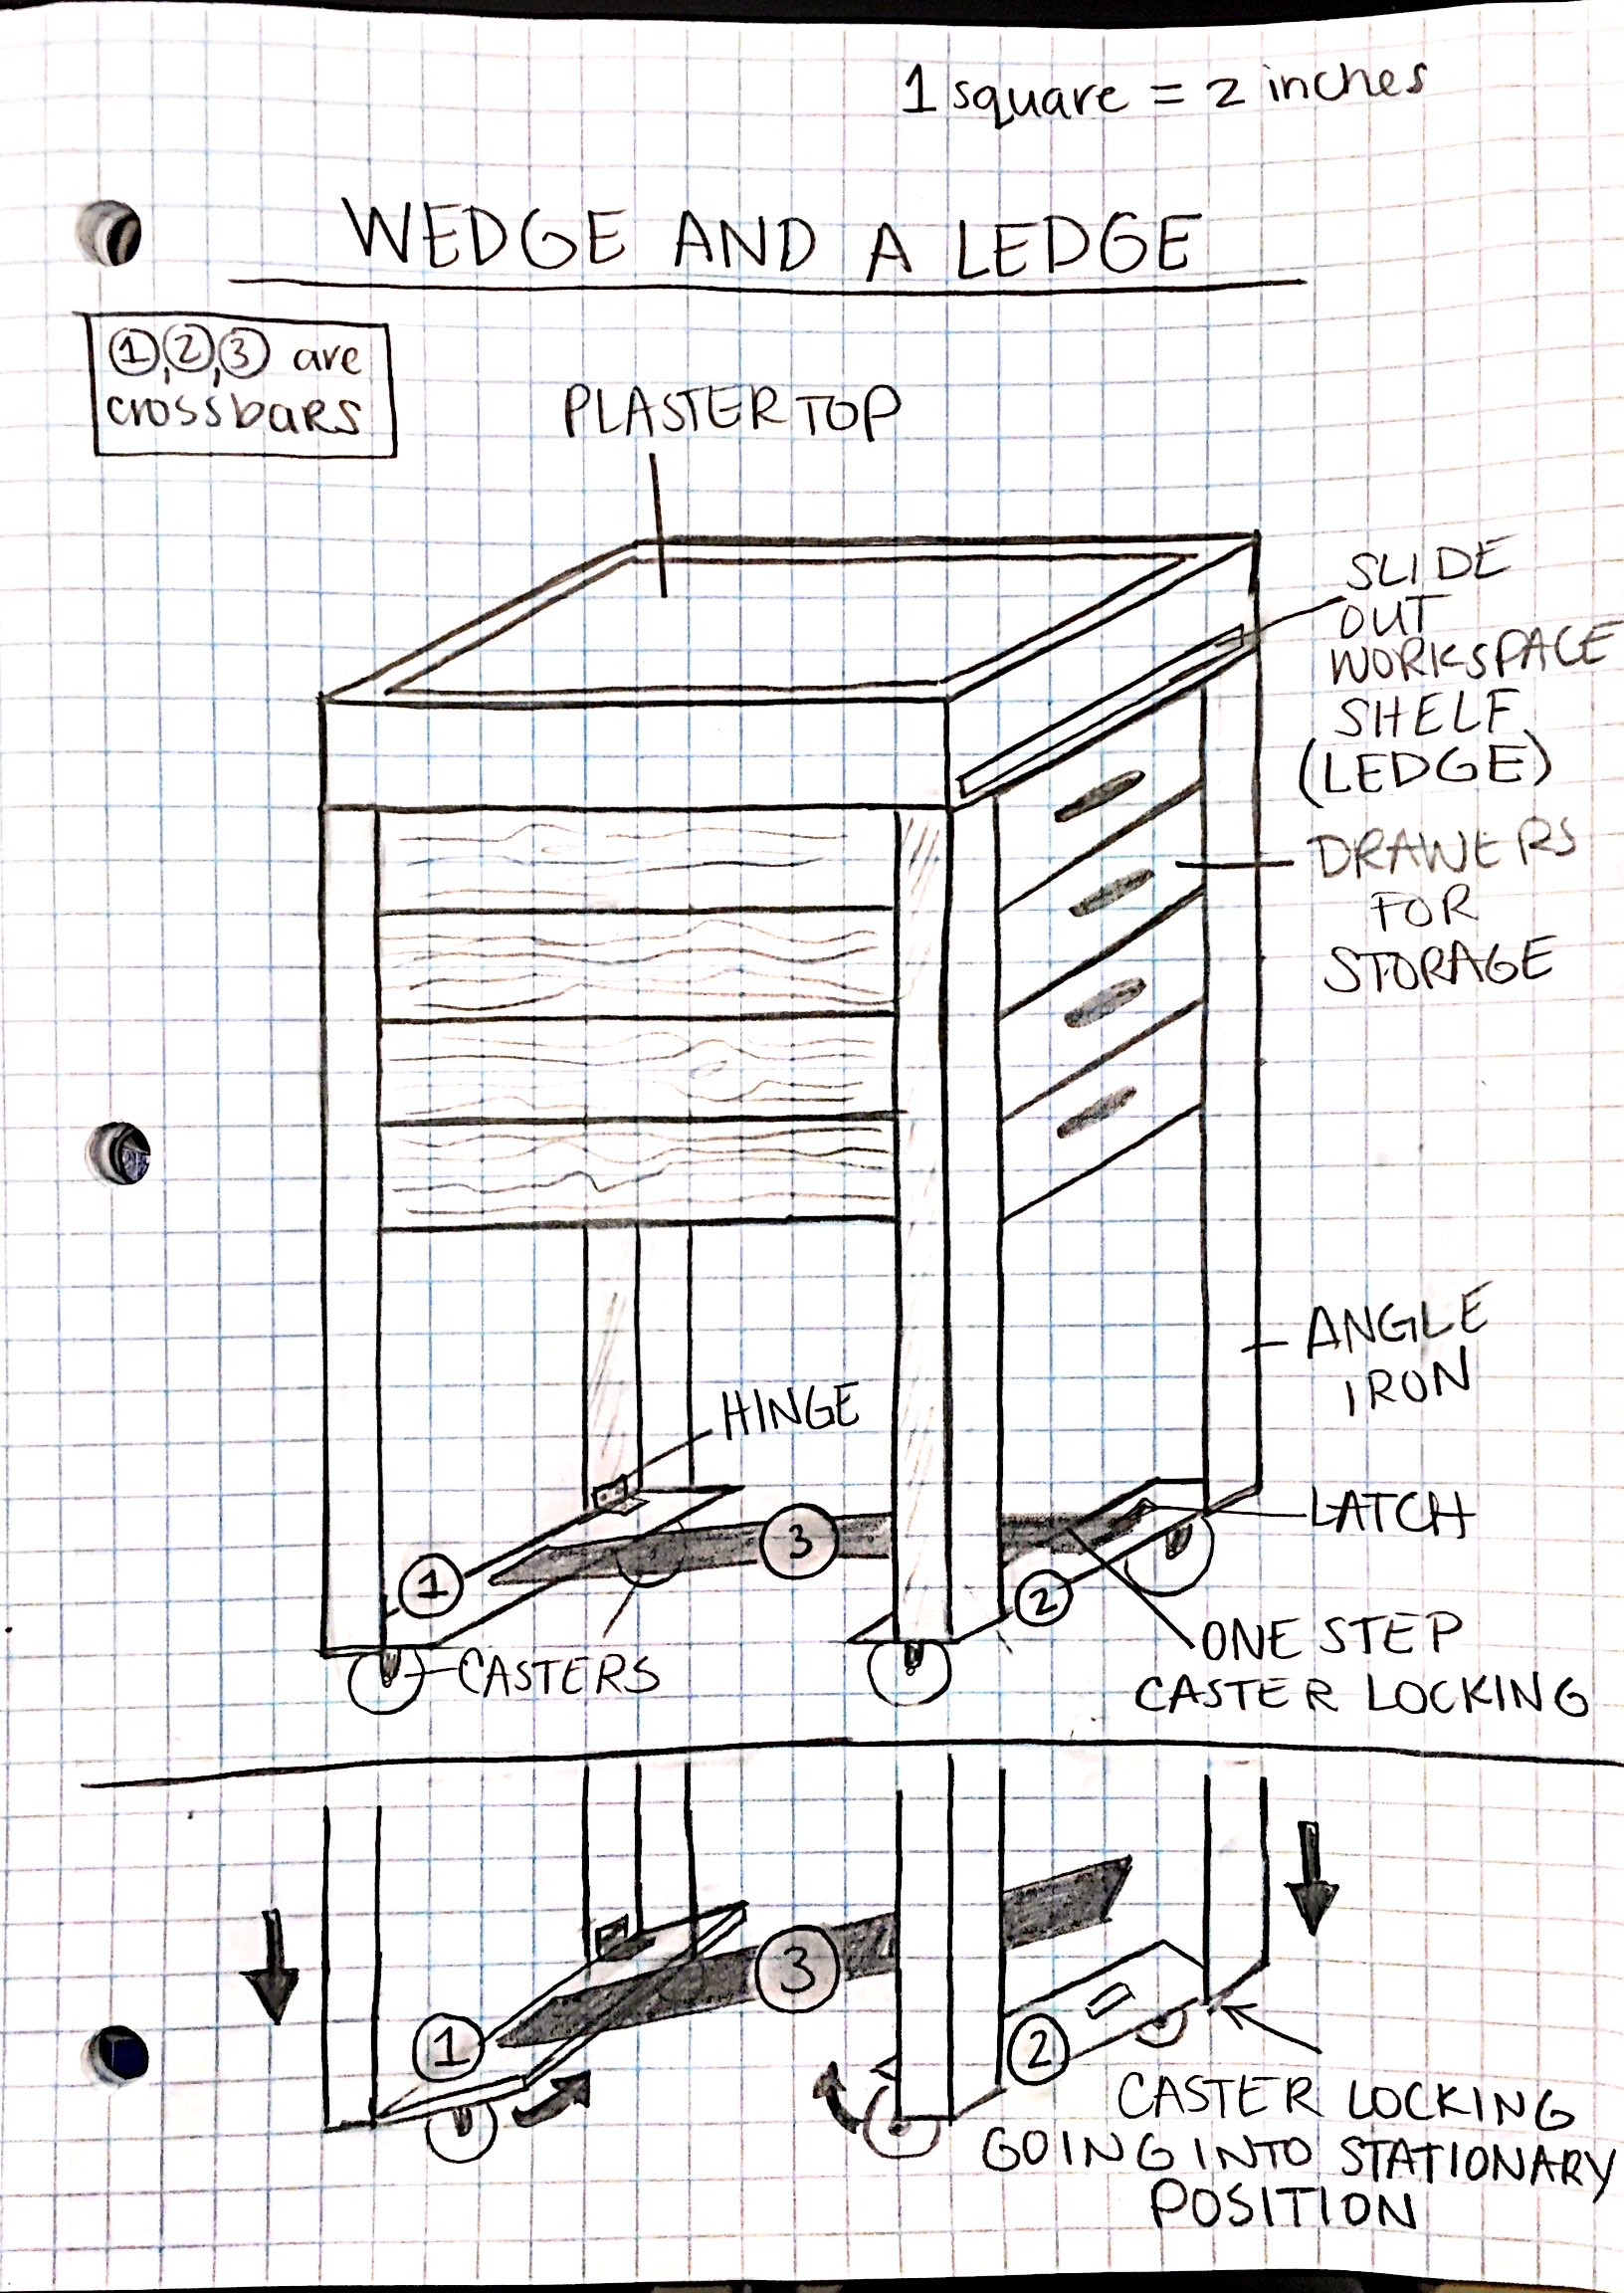 1 square = 2 inches
WEDGE AND A LEDGE
①,②,③ are
crossbars
PLASTER TOP
SLIDE
OUT
WORKSPACE
SHELF
(LEDGE)
DRAWERS
FOR
STORAGE
ANGLE
IRON
HINGE
LATCH
③
①
②
CASTERS
ONE STEP
CASTER LOCKING
③
①
②
CASTER LOCKING
GOING INTO STATIONARY
POSITION